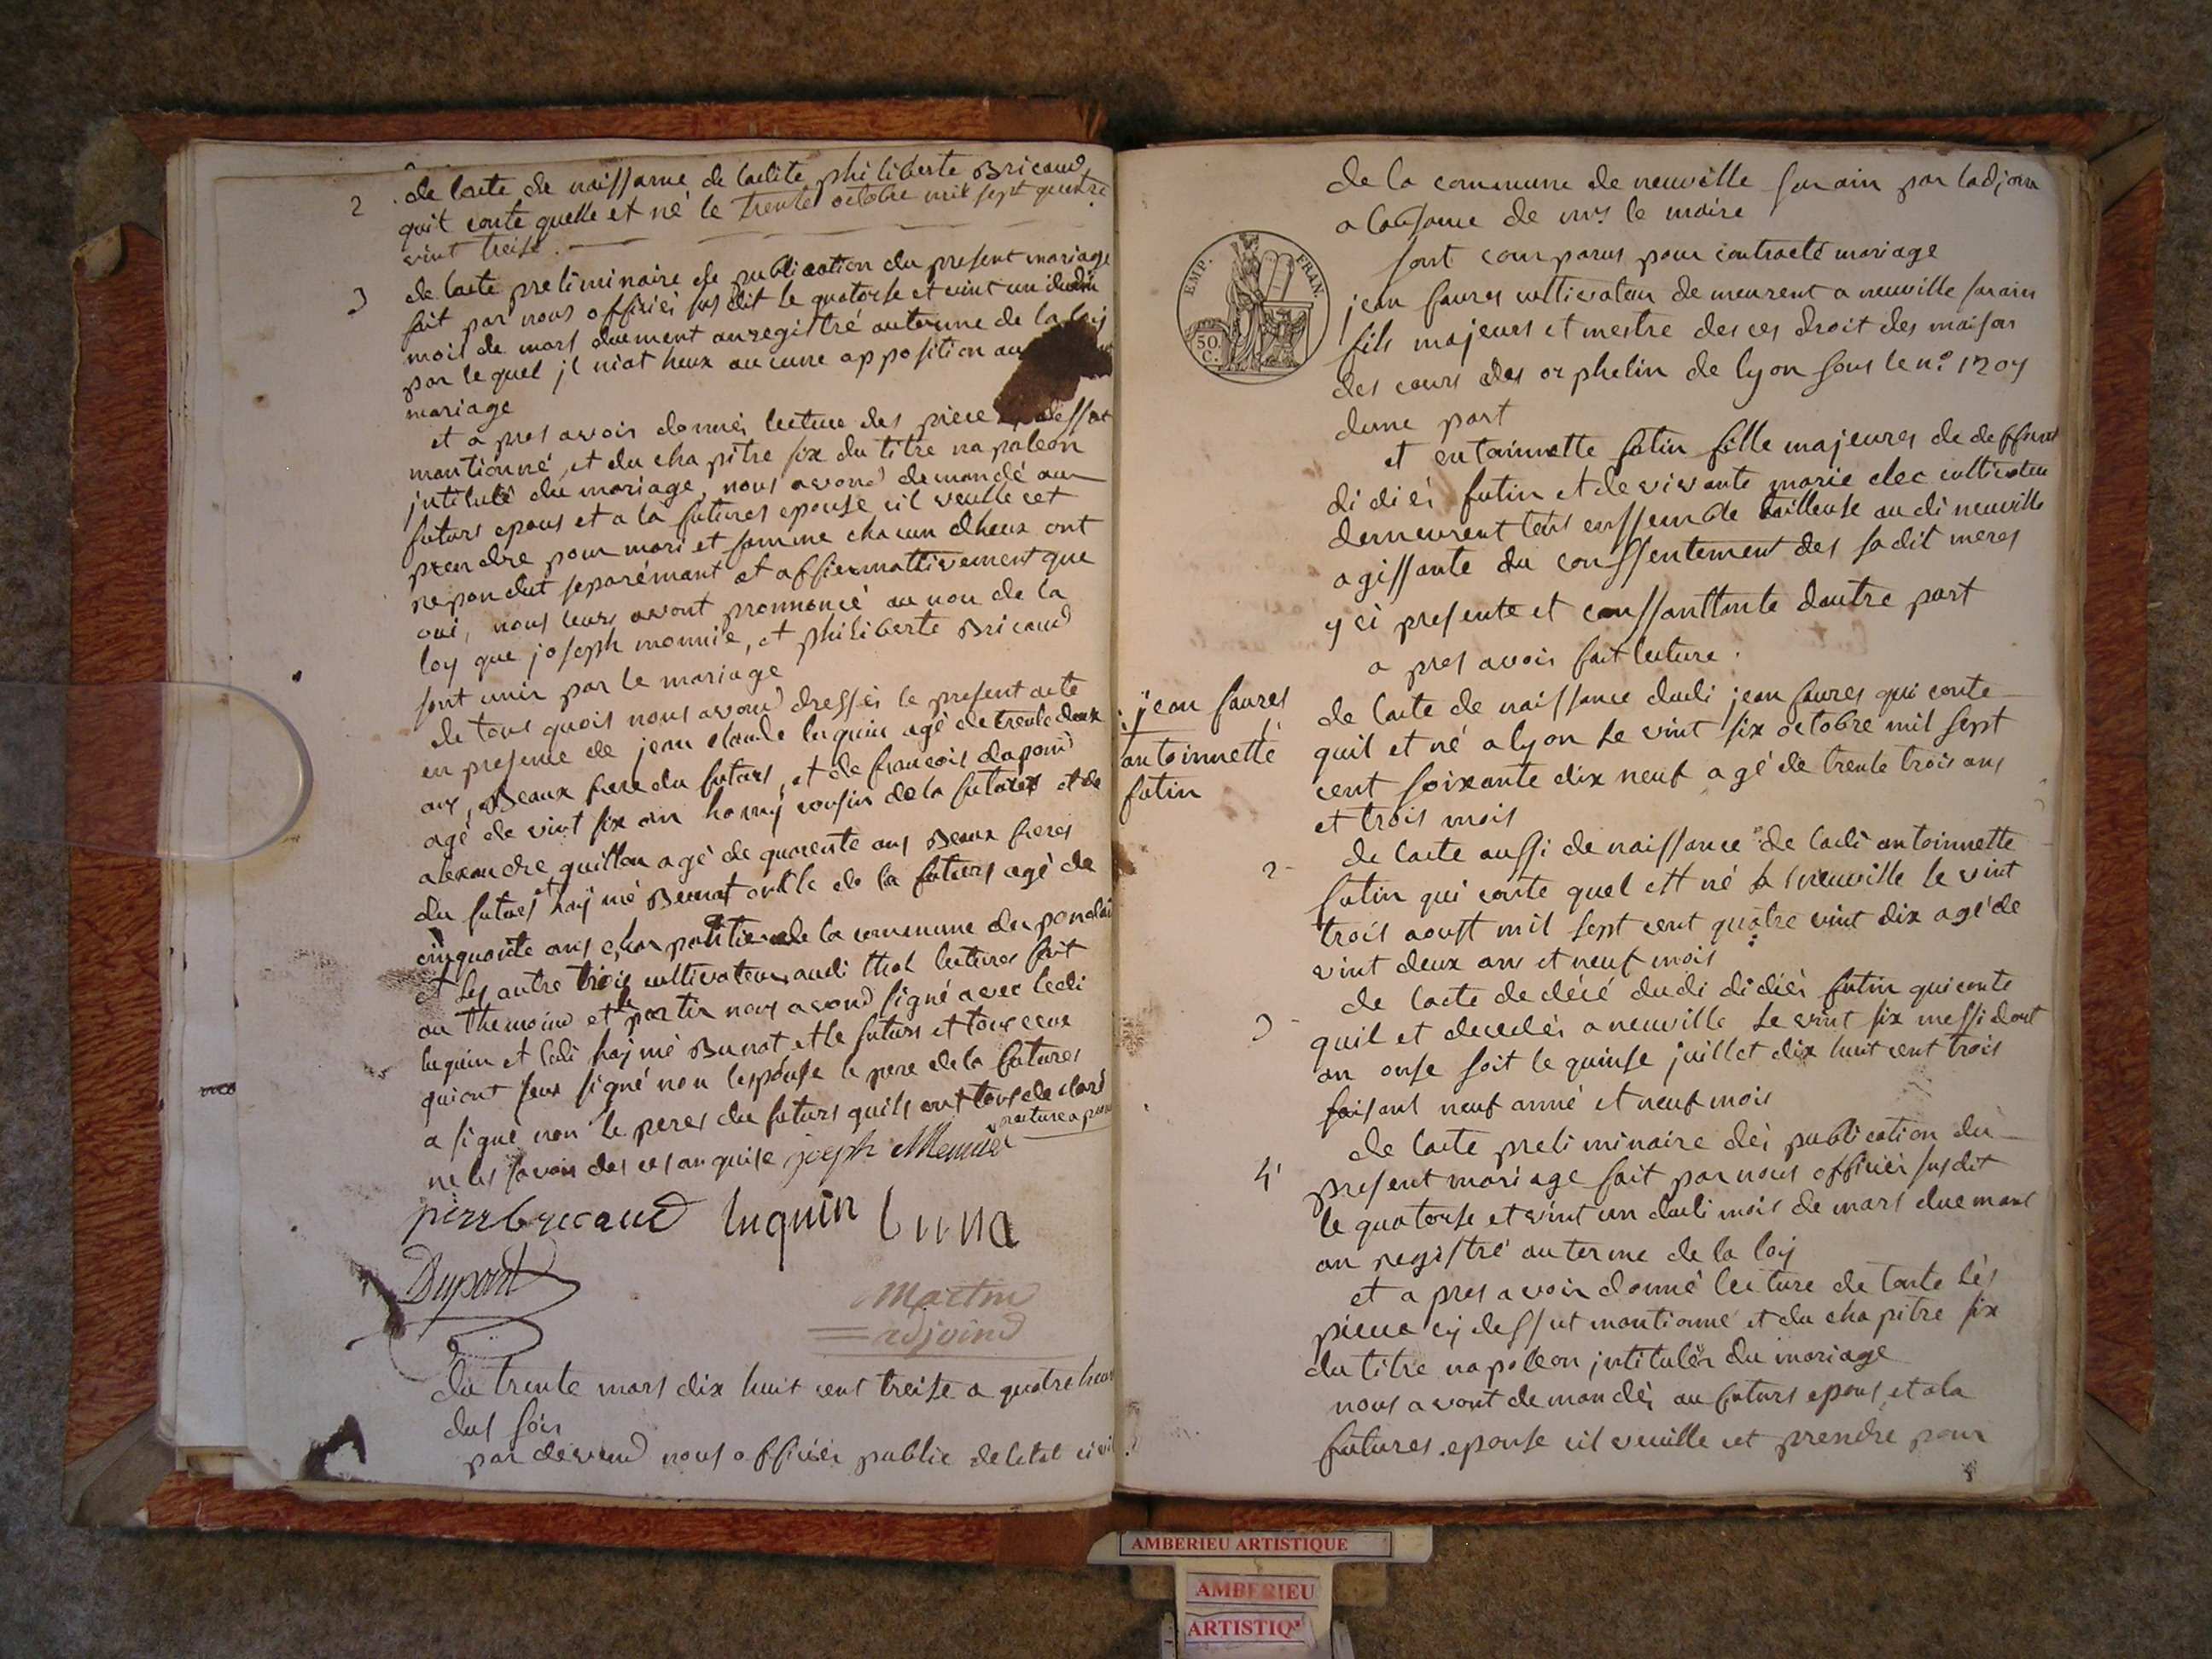 2 de lacte de naissance de ladite philiberte Bricaud
quit conte quelle et né le trente octobre mil sept quatre
vint treise
3 de lacte preliminaire de publication du present mariage
fait par nous officiéi sus dit le quatorse et vint un dudi
mois de mars duement anregistré auterme de la loij
par le quel jl niat heux aucune apposition au
mariage
et a pres avoir donnéi lecture des piece dessut
mantionné, et du chapitre six du titre napoleon
jntitulé du mariage, nous avond demandé au
futurs epous et a la futures epouse cil veulle cet
prendre pour mari et famme chacun dheux ont
repondut separémant et affiermattivement que
oui, nous leurs avont pronnoncé au non de la
loy que joseph monnié, et philiberte Bricaud
sont unir par le mariage
de tous quois nous avond dresséi le present acte
en presence de jean claude luquin agé de trente deux
ans, Beaux frere du futurs, et de francois dapont
agé de vint six an cousin de la futures et de
alexandre guillon agé de quarente ans Beaux freres
du futures et haj mé Bunat oncle de la futurs agé de
cinquante ans charpantier de la commune du pondain
et les autre trois cultivateur audi thol lectures fait
au themoind et le partis nous avond signé avec ledi
luquin et ledi haj mé Bunat et le futurs et tous ceux
quiont seux signé non lespouse le pere de la futures
a signé non le peres du futurs quils ont tous de claré
ne les savoir des ces anquise joseph Monnier rature a prouvé
pierr bricaud luquin buna
Dupont
Martin
adjoind
du trente mars dix huit cent treise a quatre heur
dus soir
par devend nous officiéi public deletat civil
de la commune de neuville sur ain par ladjoin
a labsance de mrs le maire
sont comparus pour contracté mariage
EMP. FRAN.
50 C.
jean faures cultivateur demeurent a neuville surain
fils majeurs et mestre des ces droit des maison
des cours des orphelin de lyon sous le n.o 1207
dune part
et entoinnette futin fille majeures de deffunt
didiéi futin et de vivante marie clec cultivateur
demeurent tous enssemble tailleuse audi neuville
agissante du conssentement des sadit meres
yci presente et conssanttante dautre part
a pres avoir fait lecture.
jean faures
antoinnette
futin
de lacte de naissance dudi jean faures qui conte
quil et né a lyon le vint six octobre mil sept
cent soixante dix neuf agé de trente trois ans
et trois mois
2 - de lacte aussi de naissance de ladi antoinnette
futin qui conte quel ett né a neuville le vint
trois aoust mil sept cent quatre vint dix agé de
vint deux ans et neuf mois
3 - de lacte de décé dudi didiéi futin qui conte
quil et decedéi a neuville le vint six messidort
an onse soit le quinse juillet dix huit cent trois
faisant neuf anné et neuf mois
4 de lacte preliminaire déi publication du
present mariage fait par nous officiéi susdit
le quatorse et vint un dudi mois de mars duemant
an registré au terme de la loij
et a pres avoir donné lecture de toute lés
piecea cij dessut mantionné et du chapitre six
du titre napoleon jntituléi du mariage
nous avont demandéi au futurs epous et a la
futures epouse cil veuille cet prendre pour
AMBERIEU ARTISTIQUE
AMBERIEU
ARTISTIQU